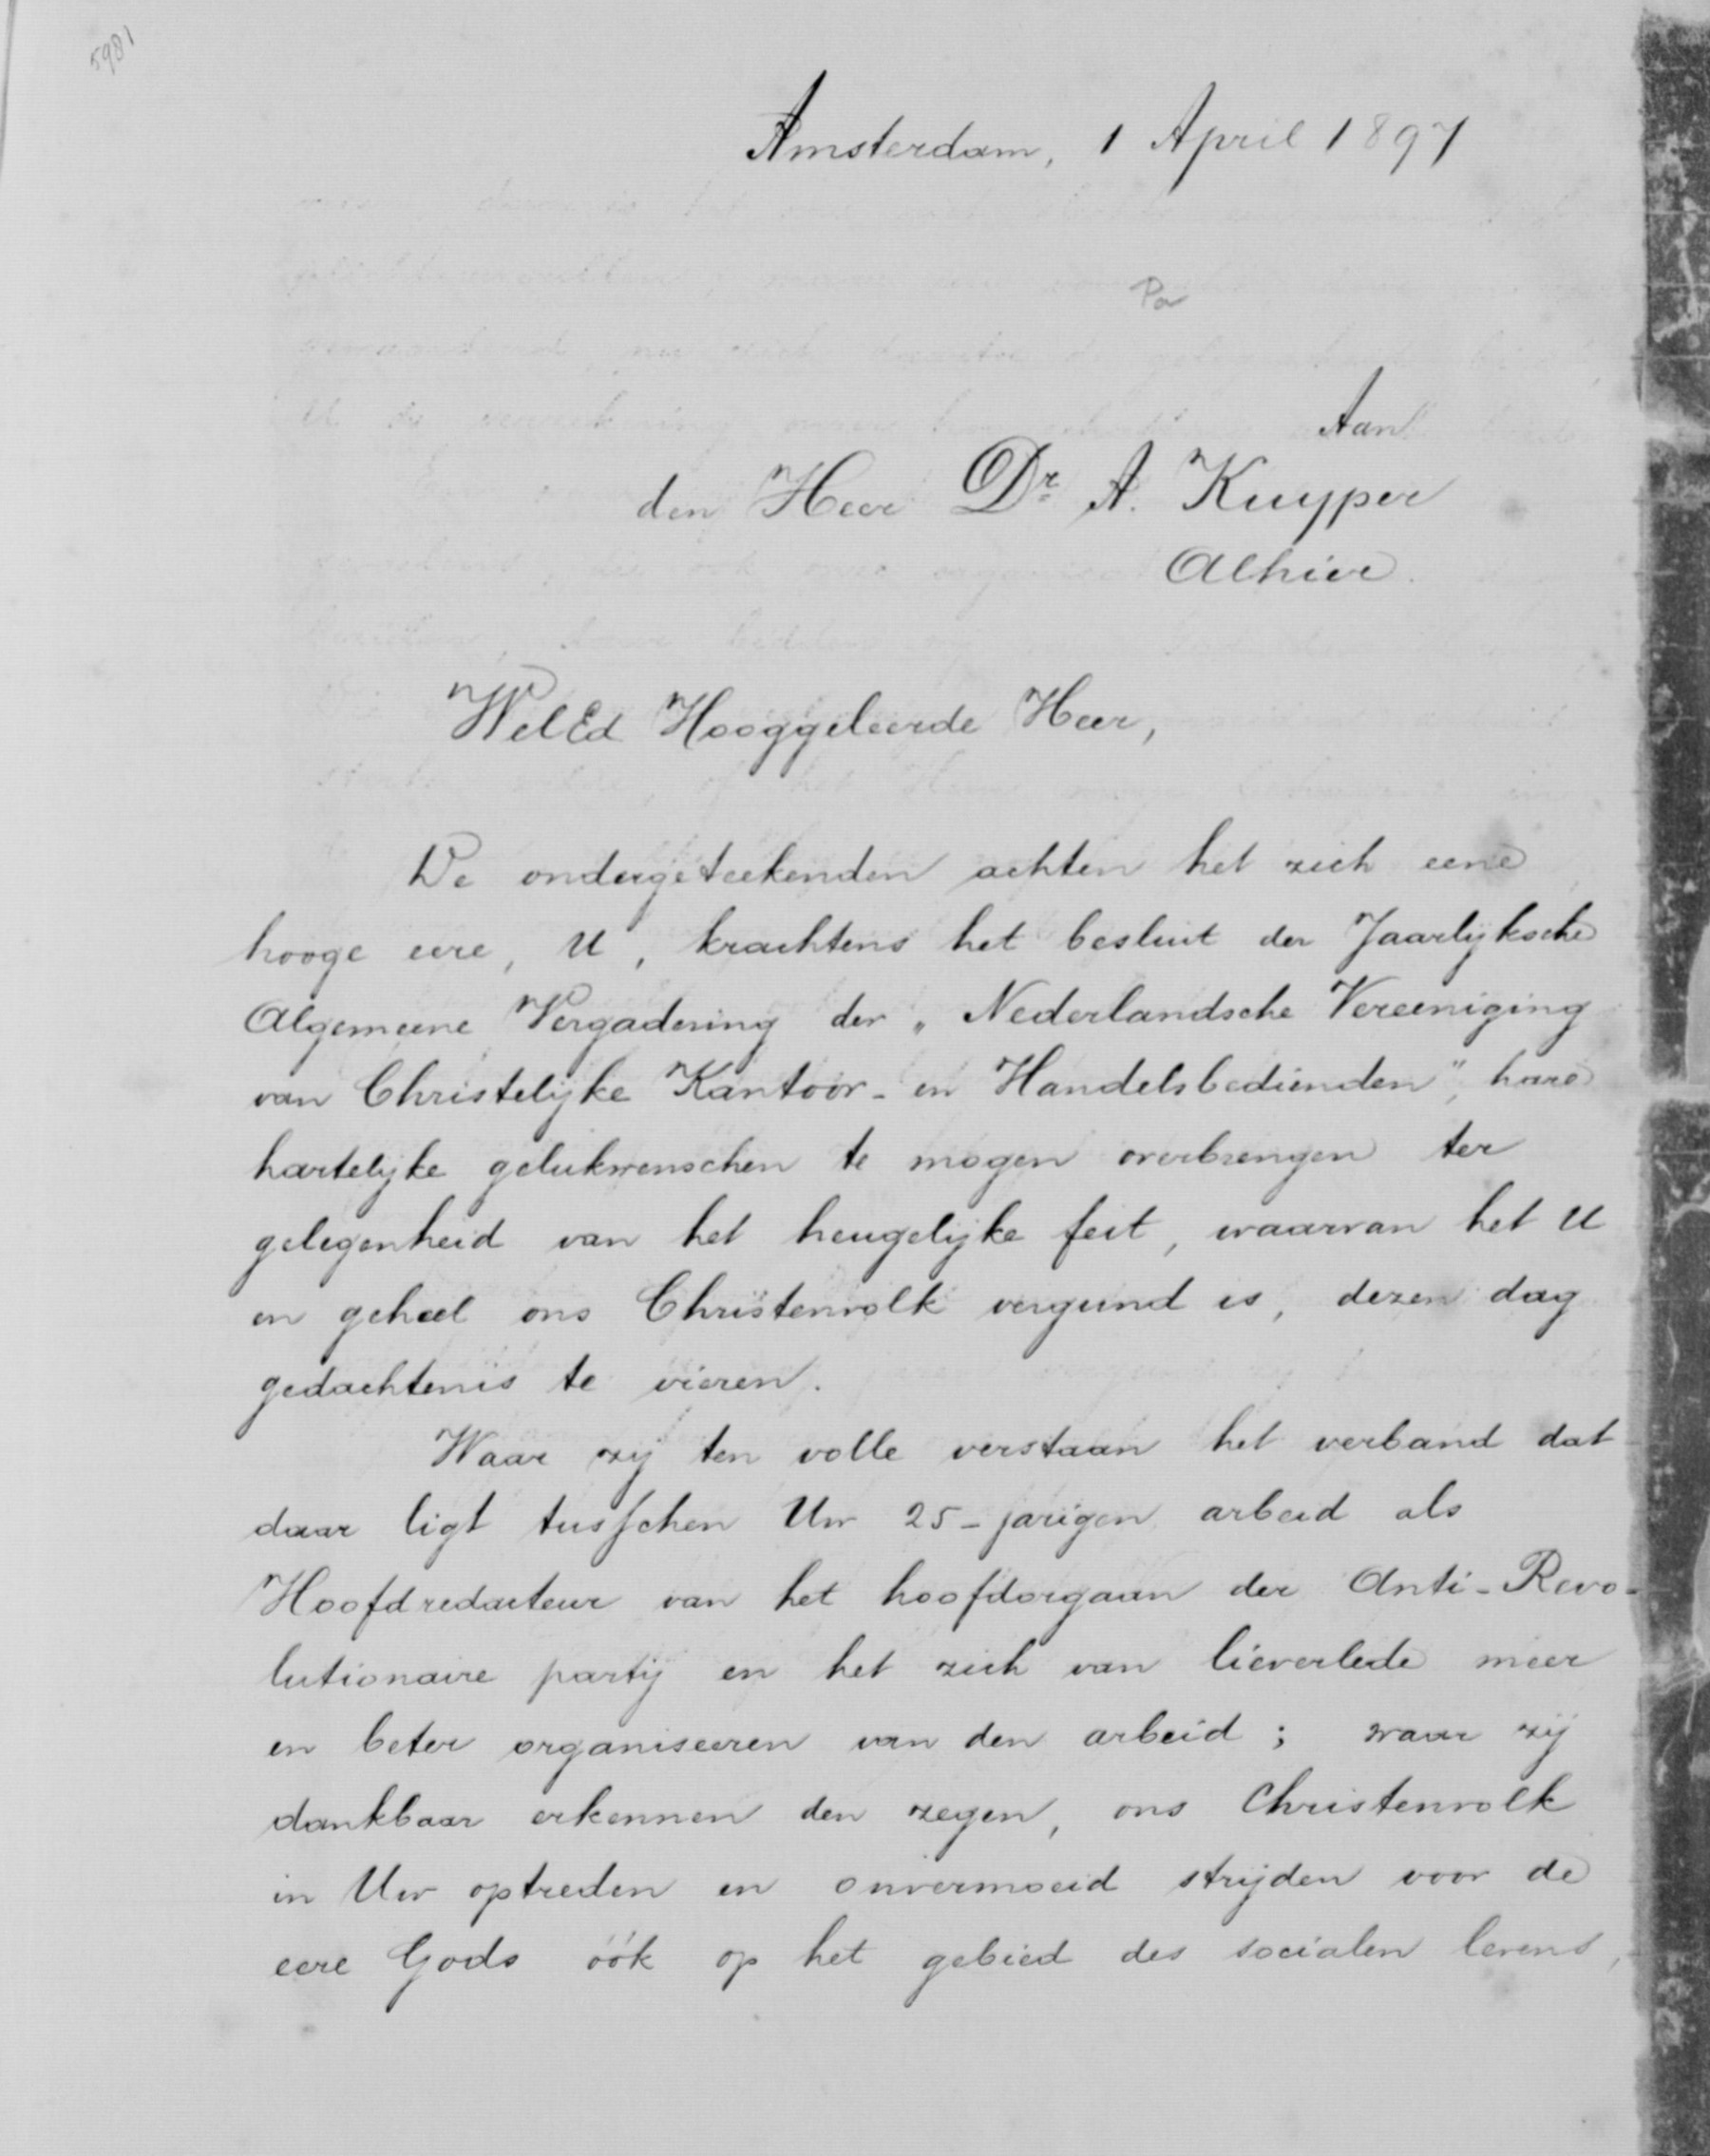 5981
Amsterdam, 1 April 1897
Pa
Aan
den Heer Dr. A. Kuyper
Alhier.
WelEd Hooggeleerde Heer,
De ondergeteekenden achten het zich eene
hooge eere, U, krachtens het besluit der Jaarlijksche
Algemeene Vergadering der „Nederlandsche Vereeniging
van Christelijke Kantoor- en Handelsbedienden", hare
hartelijke gelukwenschen te mogen overbrengen ter
gelegenheid van het heugelijke feit, waarvan het U
en geheel ons Christenvolk vergund is, dezen dag
gedachtenis te vieren.
Waar zij ten volle verstaan het verband dat
daar ligt tusschen Uw 25-jarigen arbeid als
Hoofdredacteur van het hoofdorgaan der Anti-Revo-
lutionaire partij en het zich van lieverlede meer
en beter organiseeren van den arbeid; waar zij
dankbaar erkennen den zegen, ons Christenvolk
in Uw optreden en onvermoeid strijden voor de
eere Gods óók op het gebied des socialen levens,